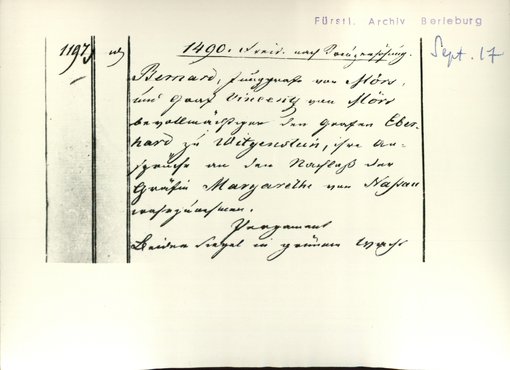 Fürstl. Archiv Berleburg
Sept. 17
1197
1490. Freit. nach Kreuzerhöhung.
Bernard, Junggraf von Mörs,
und Graf Vincentz von Mörs
bevollmächtigen den Grafen Eber-
hard zu Witgenstein, ihre An-
sprüche an den Nachlaß der
Gräfin Margarethe von Nassau
wahrzunehmen.
Pergament
Beider Siegel in grünem Wachs